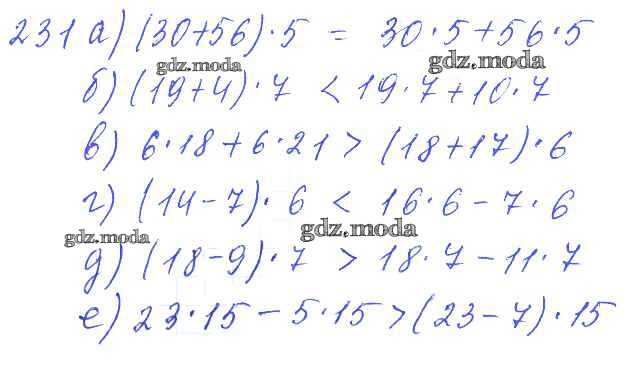 231 а) (30+56)·5 = 30·5+56·5
gdz.moda gdz.moda
б) (19+4)·7 < 19·7+10·7
в) 6·18+6·21 > (18+17)·6
г) (14-7)·6 < 16·6-7·6
gdz.moda gdz.moda
д) (18-9)·7 > 18·7-11·7
е) 23·15-5·15 > (23-7)·15